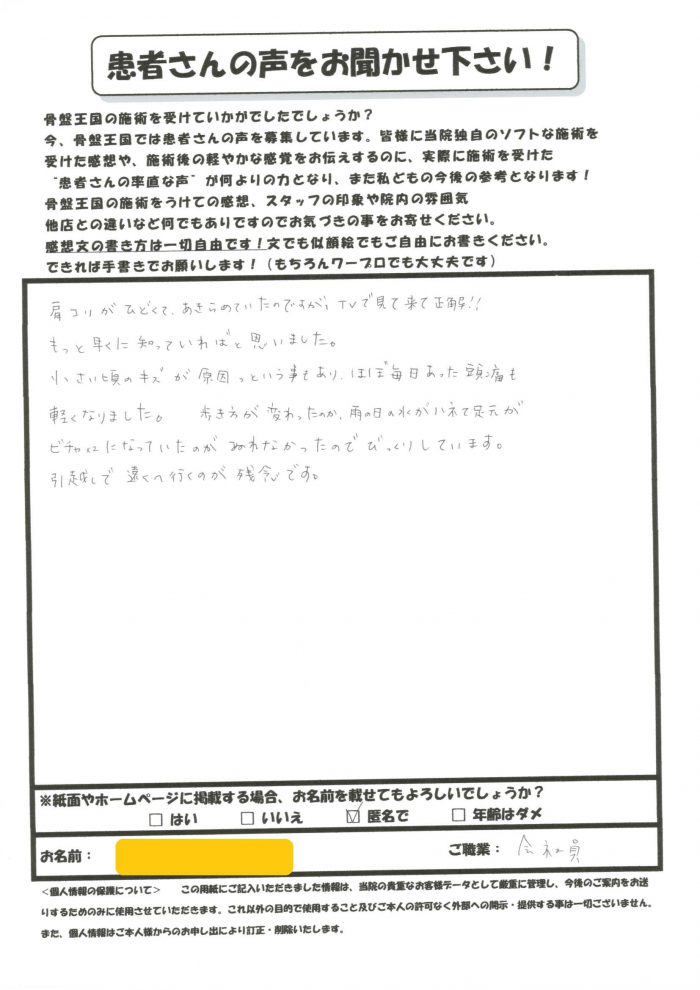 患者さんの声をお聞かせ下さい！
骨盤王国の施術を受けていかがでしたでしょうか？
今、骨盤王国では患者さんの声を募集しています。皆様に当院独自のソフトな施術を
受けた感想や、施術後の軽やかな感覚をお伝えするのに、実際に施術を受けた
"患者さんの率直な声"が何よりの力となり、また私どもの今後の参考となります！
骨盤王国の施術をうけての感想、スタッフの印象や院内の雰囲気
他店との違いなど何でもありですのでお気づきの事をお寄せください。
感想文の書き方は一切自由です！文でも似顔絵でもご自由にお書きください。
できれば手書きでお願いします！（もちろんワープロでも大丈夫です）
肩コリがひどくて、あきらめていたのですが、TVで見て来て正解!!
もっと早くに知っていればと思いました。
小さい頃のキズが原因っという事もあり、ほぼ毎日あった頭痛も
軽くなりました。 歩き方が変わったのか、雨の日の水がハネて足元が
ビチャビチャになっていたのがぬれなかったのでびっくりしています。
引越しで遠くへ行くのが残念です。
※紙面やホームページに掲載する場合、お名前を載せてもよろしいでしょうか？
□ はい □ いいえ ☑ 匿名で □ 年齢はダメ
お名前： ご職業： 会社員
＜個人情報の保護について＞ この用紙にご記入いただきました情報は、当院の貴重なお客様データとして厳重に管理し、今後のご案内をお送
りするためのみに使用させていただきます。これ以外の目的で使用すること及びご本人の許可なく外部への開示・提供する事は一切ございません。
また、個人情報はご本人様からのお申し出により訂正・削除いたします。